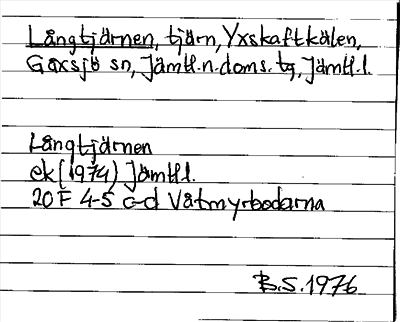 Långtjärnen, tjärn, Yxskaftkälen,
Gåxsjö sn, Jämtl.n.doms.tg, Jämtl.l.
Långtjärnen
ek (1974) Jämtl.l.
20F 4-5 c-d Våtmyrbodarna
B.S. 1976